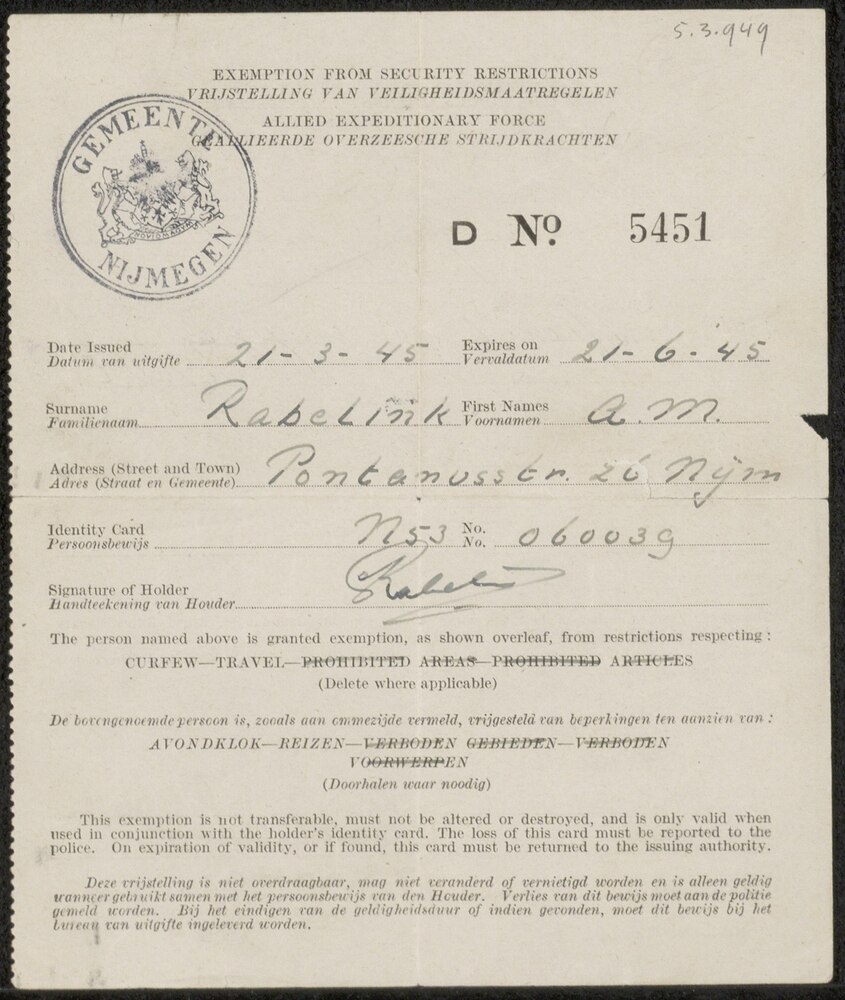 5.3.949
EXEMPTION FROM SECURITY RESTRICTIONS
VRIJSTELLING VAN VEILIGHEIDSMAATREGELEN
ALLIED EXPEDITIONARY FORCE
GEALLIEERDE OVERZEESCHE STRIJDKRACHTEN
GEMEENTE
NIJMEGEN
D No. 5451
Date Issued 21-3-45 Expires on 21-6-45
Datum van uitgifte Vervaldatum
Surname Rabelink First Names A.M.
Familienaam Voornamen
Address (Street and Town) Pontanusstr. Nijm
Adres (Straat en Gemeente)
Identity Card N53 No. 060039
Persoonsbewijs No.
Signature of Holder Rabelink
Handteekening van Houder
The person named above is granted exemption, as shown overleaf, from restrictions respecting :
CURFEW—TRAVEL—PROHIBITED AREAS—PROHIBITED ARTICLES
(Delete where applicable)
De bovengenoemde persoon is, zooals aan ommezijde vermeld, vrijgesteld van beperkingen ten aanzien van :
AVONDKLOK—REIZEN—VERBODEN GEBIEDEN—VERBODEN
VOORWERPEN
(Doorhalen waar noodig)
This exemption is not transferable, must not be altered or destroyed, and is only valid when
used in conjunction with the holder's identity card. The loss of this card must be reported to the
police. On expiration of validity, or if found, this card must be returned to the issuing authority.
Deze vrijstelling is niet overdraagbaar, mag niet veranderd of vernietigd worden en is alleen geldig
wanneer gebruikt samen met het persoonsbewijs van den Houder. Verlies van dit bewijs moet aan de politie
gemeld worden. Bij het eindigen van de geldigheidsduur of indien gevonden, moet dit bewijs bij het
bureau van uitgifte ingeleverd worden.